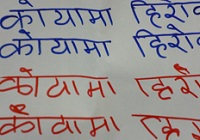 कोयामा हिरो
कोयामा हिरो
कोयामा हिरो
कोयामा